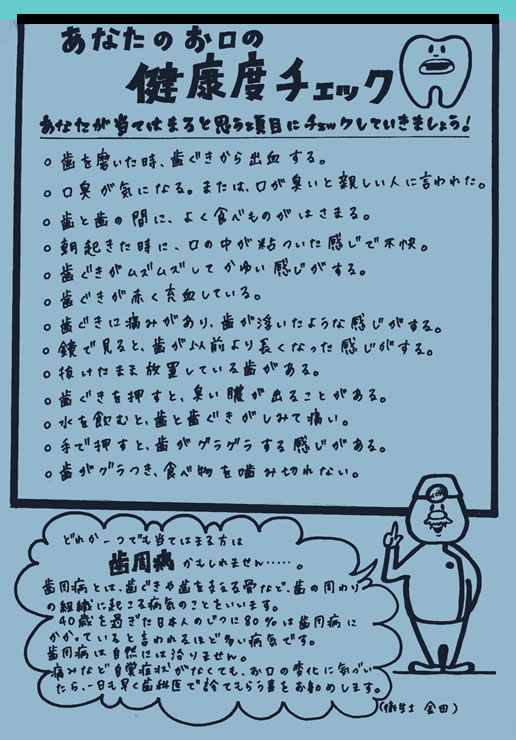 あなたのお口の
健康度チェック
あなたが当てはまると思う項目にチェックしていきましょう!
○ 歯を磨いた時、歯ぐきから出血する。
○ 口臭が気になる。または、口が臭いと親しい人に言われた。
○ 歯と歯の間に、よく食べものがはさまる。
○ 朝起きた時に、口の中が粘ついた感じで不快。
○ 歯ぐきがムズムズしてかゆい感じがする。
○ 歯ぐきが赤く充血している。
○ 歯ぐきに痛みがあり、歯が浮いたような感じがする。
○ 鏡で見ると、歯が以前より長くなった感じがする。
○ 抜けたまま放置している歯がある。
○ 歯ぐきを押すと、臭い膿が出ることがある。
○ 水を飲むと、歯と歯ぐきがしみて痛い。
○ 手で押すと、歯がグラグラする感じがある。
○ 歯がグラつき、食べ物を噛み切れない。
どれか一つでも当てはまる方は
歯周病かもしれません……。
歯周病とは、歯ぐきや歯を支える骨など、歯の周わり
の組織に起こる病気のことをいいます。
40歳を過ぎた日本人のじつに80%は歯周病に
かかっていると言われるほど多い病気です。
歯周病は自然には治りません。
痛みなど自覚症状がなくても、お口の変化に気づい
たら、一日も早く歯科医で診てもらう事をお勧めします。
(衛生士 金田)